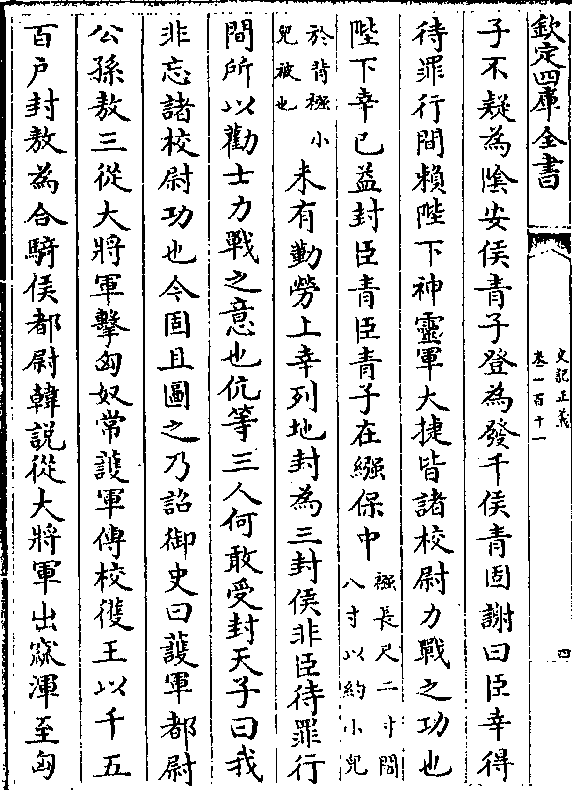 欽定四庫全書
史記正義
卷一百十一
四
子不疑為陰安侯青子登為發千侯青固謝曰臣幸得
待罪行間賴陛下神靈軍大捷皆諸校尉力戰之功也
陛下幸已益封臣青臣青子在繦保中繦長尺二寸闊八寸以約小兒
於背襁小兒被也未有勤勞上幸列地封為三封侯非臣待罪行
間所以勸士力戰之意也伉等三人何敢受封天子曰我
非忘諸校尉功也今固且圖之乃詔御史曰護軍都尉
公孫敖三從大將軍擊匈奴常護軍傅校獲王以千五
百戶封敖為合騎侯都尉韓說從大將軍出窳渾至匈